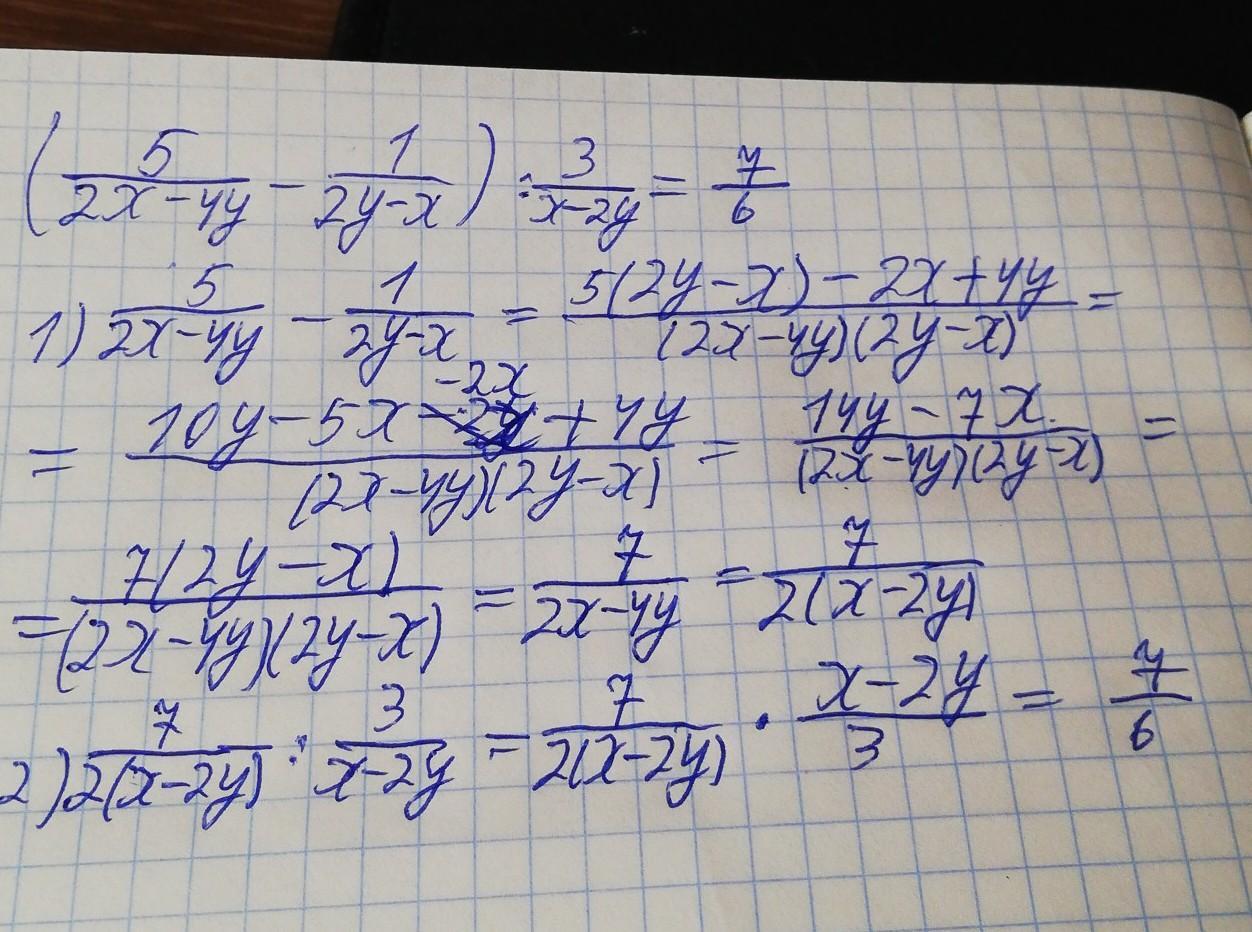 (5/(2x-4y) - 1/(2y-x)) : 3/(x-2y) = 7/6
1) 5/(2x-4y) - 1/(2y-x) = (5(2y-x) - 2x+4y)/((2x-4y)(2y-x)) =
= (10y-5x -2x +4y)/((2x-4y)(2y-x)) = (14y-7x)/((2x-4y)(2y-x)) =
= 7(2y-x)/((2x-4y)(2y-x)) = 7/(2x-4y) = 7/(2(x-2y))
2) 7/(2(x-2y)) : 3/(x-2y) = 7/(2(x-2y)) · (x-2y)/3 = 7/6